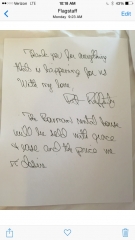 Verizon LTE 10:18 AM 63%
Flagstaff
Monday 9:23 AM
Thank you for everything
that is happening for us
With my love,
The Baumani rental house
will be sold with grace
& ease and the peace me